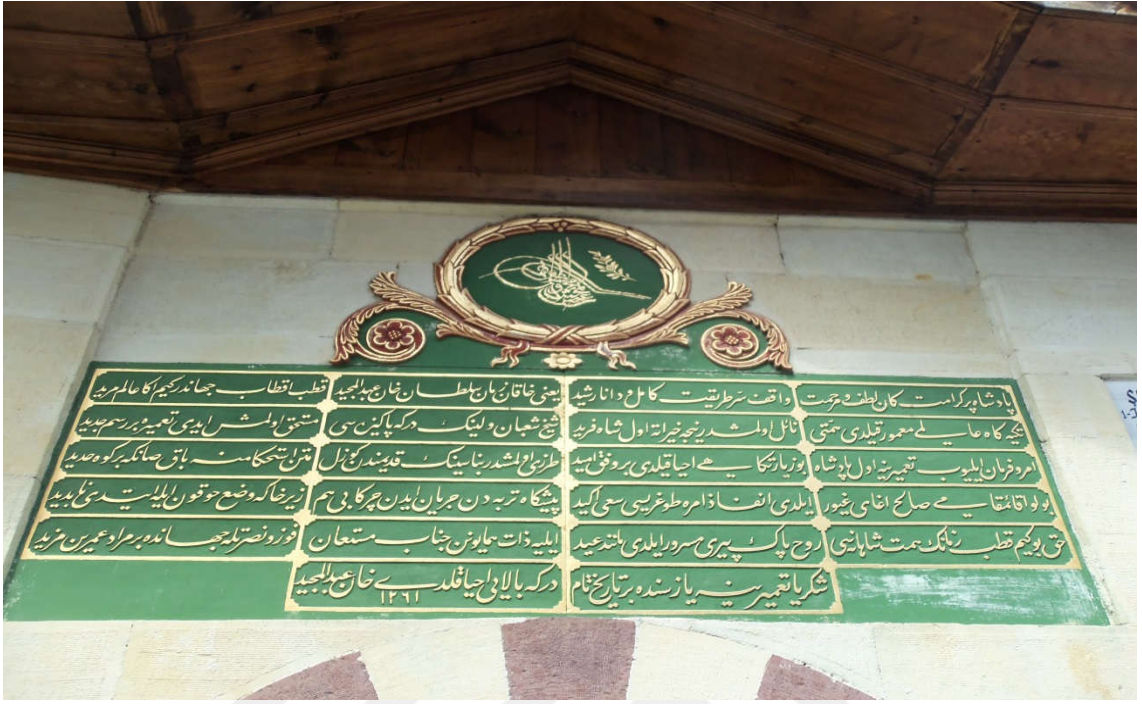 پادشاه پر کرامت کان لطف و مرحمت واقف سر طریقت کامل و دانا رشید یعنی خاقان زمان سلطان خان عبدالمجید قطب اقطاب جهاندر کیم اکا عالم مرید
تکیه کاه عالمی معمور قیلدی همتی نائل اولمشدر نیجه خیراته اول شاه فرید شیخ شعبان ولینک درکه پاکین سی مستحق اولمش ایدی تعمیره بر رسم جدید
امر و فرمان ایلیوب تعمیرینه اول پادشاه بو زیارتکاهی احیا قیلدی بر وفق امید طرزی اولمشدر بناسینک قدیمندن کوزل متن استحکامنه باق صانکه بر کوه حدید
بولو قائمقامی صالح اغای غیور ایلدی انفاذ امره طوغریسی سعی اکید پیشکاه تربه دن جریان ایدن چرکابی هم زیر خاکه وضع نابدید
حق بو کیم قطب زمانک همت شاهانه سی روح پاک پیری مسرور ایلدی مانند عید ایلیه ذات همایونن جناب مستعان فوز و نصرتله جهانده بر مراد و عمرین مزید
شکریا تعمیرینه یازسنده بر تاریخ تام درکه بالایی احیا قلدی خان عبدالمجید
١٢٦١